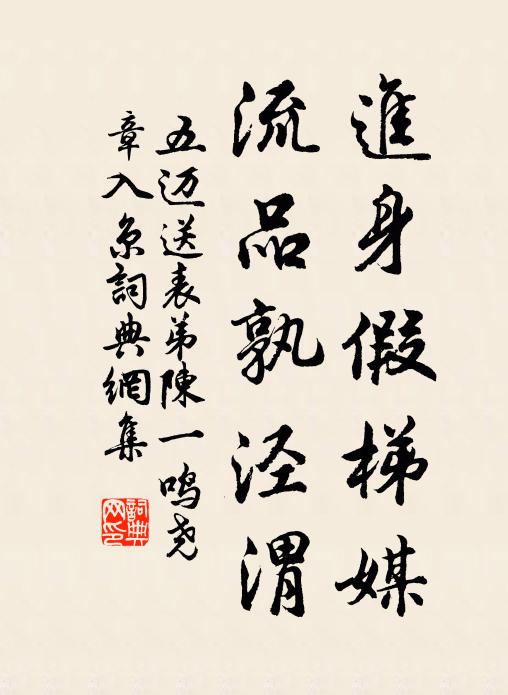 進身假梯媒
流品孰泾渭
五迈送表弟陳一鸣尧
章入京詞典網集
詞典
网印